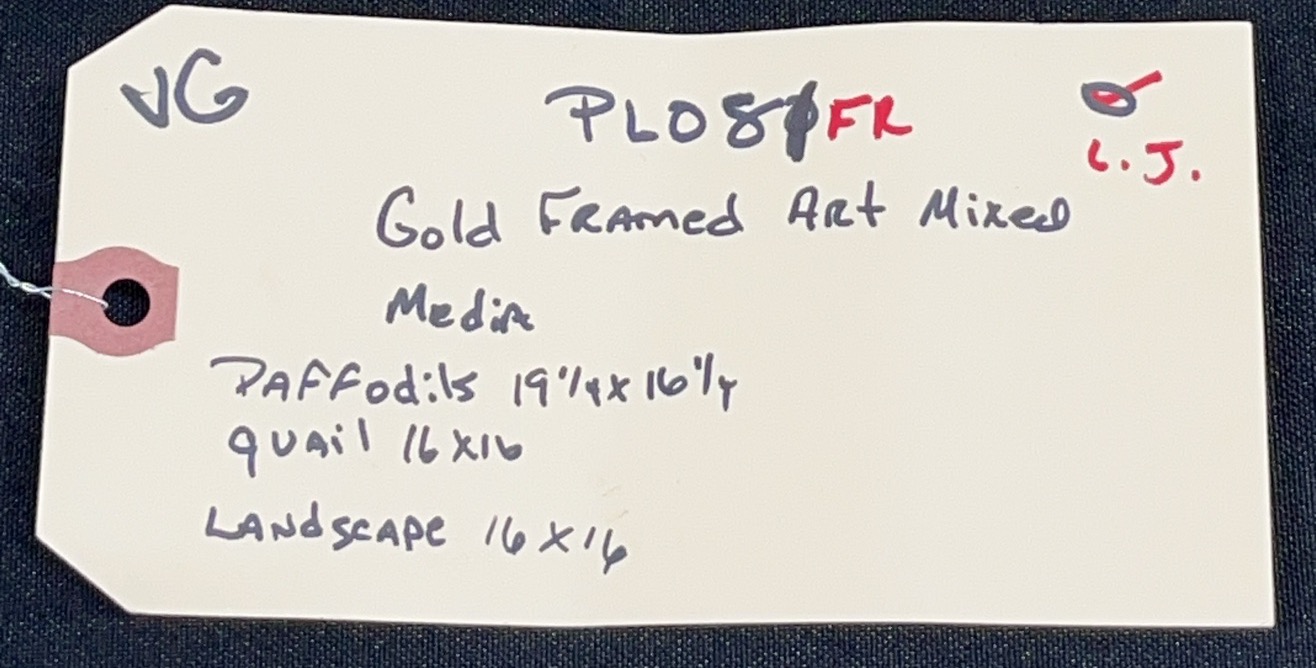 VG
PL08 FR
L.J.
Gold Framed Art Mixed
Media
Daffodils 19 1/4 x 16 1/4
quail 16 x 16
Landscape 16 x 16